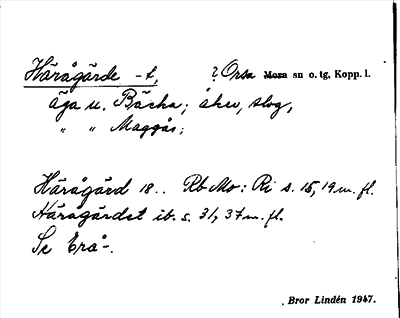 Härågärde -t, ? Orsa Mora sn o. tg, Kopp. l.
äga u. Bäcka; åker, skog,
" " Maggås;
Härågärd 18.. Rb Mo: Ri s. 15, 19 m. fl.
Härågärdet ib. s. 31, 37 m. fl.
Se Erå-.
. Bror Lindén 1947.